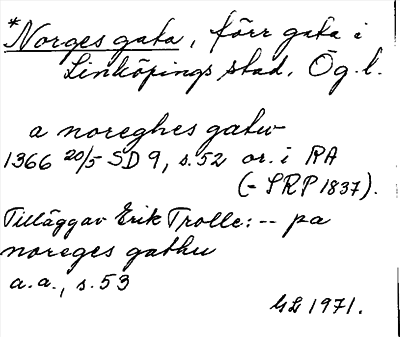 *Norges gata, förr gata i
Linköpings stad, Ög.l.
a noreghes gatw
1366 20/5 SD 9, s.52 or. i RA
(= SRP 1837).
Tillägg av Erik Trolle: -- pa
noreges gathu
a.a., s.53
GL 1971.